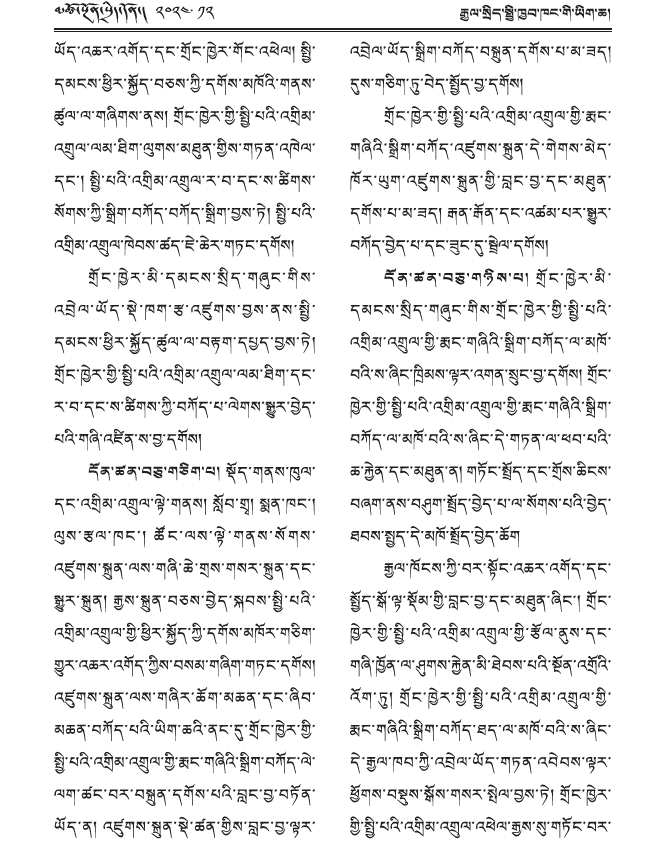 ༢༠༢༤.༡༢
རྒྱལ་སྲིད་སྤྱི་ཁྱབ་ཁང་གི་ཡིག་ཆ།
ཡོད་འཆར་འགོད་དང་གྲོང་ཁྱེར་གོང་འཕེལ། སྤྱི་
དམངས་ཕྱིར་སྐྱོད་བཅས་ཀྱི་དགོས་མཁོའི་གནས་
ཚུལ་ལ་གཞིགས་ནས། གྲོང་ཁྱེར་གྱི་སྤྱི་པའི་འགྲིམ་
འགྲུལ་ལམ་ཐིག་ལུགས་མཐུན་གྱིས་གཏན་འཁེལ་
དང་། སྤྱི་པའི་འགྲིམ་འགྲུལ་ར་བ་དང་ས་ཚིགས་
སོགས་ཀྱི་སྒྲིག་བཀོད་བཀོད་སྒྲིག་བྱས་ཏེ། སྤྱི་པའི་
འགྲིམ་འགྲུལ་ཁེབས་ཚད་ཇེ་ཆེར་གཏང་དགོས།
གྲོང་ཁྱེར་མི་དམངས་སྲིད་གཞུང་གིས་
འབྲེལ་ཡོད་སྡེ་ཁག་རྩ་འཛུགས་བྱས་ནས་སྤྱི་
དམངས་ཕྱིར་སྐྱོད་ཚུལ་ལ་བརྟག་དཔྱད་བྱས་ཏེ།
གྲོང་ཁྱེར་གྱི་སྤྱི་པའི་འགྲིམ་འགྲུལ་ལམ་ཐིག་དང་
ར་བ་དང་ས་ཚིགས་ཀྱི་བཀོད་པ་ལེགས་སྒྱུར་བྱེད་
པའི་གཞི་འཛིན་ས་བྱ་དགོས།
དོན་ཚན་བཅུ་གཅིག་པ། སྡོད་གནས་ཁུལ་
དང་འགྲིམ་འགྲུལ་ལྟེ་གནས། སློབ་གྲྭ། སྨན་ཁང་།
ལུས་རྩལ་ཁང་། ཚོང་ལས་ལྟེ་གནས་སོགས་
འཛུགས་སྐྲུན་ལས་གཞི་ཆེ་གྲས་གསར་སྐྲུན་དང་
སྒྱུར་སྐྲུན། རྒྱས་སྐྲུན་བཅས་བྱེད་སྐབས་སྤྱི་པའི་
འགྲིམ་འགྲུལ་གྱི་ཕྱིར་སྐྱོད་ཀྱི་དགོས་མཁོར་གཅིག་
གྱུར་འཆར་འགོད་ཀྱིས་བསམ་གཞིག་གཏང་དགོས།
འཛུགས་སྐྲུན་ལས་གཞིར་ཆོག་མཆན་དང་ཞིབ་
མཆན་བཀོད་པའི་ཡིག་ཆའི་ནང་དུ་གྲོང་ཁྱེར་གྱི་
སྤྱི་པའི་འགྲིམ་འགྲུལ་གྱི་རྨང་གཞིའི་སྒྲིག་བཀོད་ལེ་
ལག་ཚང་བར་བསྐྲུན་དགོས་པའི་བླང་བྱ་བཏོན་
ཡོད་ན། འཛུགས་སྐྲུན་སྡེ་ཚན་གྱིས་བླང་བྱ་ལྟར་
འབྲེལ་ཡོད་སྒྲིག་བཀོད་བསྐྲུན་དགོས་པ་མ་ཟད།
དུས་གཅིག་ཏུ་བེད་སྤྱོད་བྱ་དགོས།
གྲོང་ཁྱེར་གྱི་སྤྱི་པའི་འགྲིམ་འགྲུལ་གྱི་རྨང་
གཞིའི་སྒྲིག་བཀོད་འཛུགས་སྐྲུན་དེ་གེགས་མེད་
ཁོར་ཡུག་འཛུགས་སྐྲུན་གྱི་བླང་བྱ་དང་མཐུན་
དགོས་པ་མ་ཟད། རྒན་རྒོན་དང་འཚམ་པར་སྒྱུར་
བཀོད་བྱེད་པ་དང་ཟུང་དུ་སྦྲེལ་དགོས།
དོན་ཚན་བཅུ་གཉིས་པ། གྲོང་ཁྱེར་མི་
དམངས་སྲིད་གཞུང་གིས་གྲོང་ཁྱེར་གྱི་སྤྱི་པའི་
འགྲིམ་འགྲུལ་གྱི་རྨང་གཞིའི་སྒྲིག་བཀོད་ལ་མཁོ་
བའི་ས་ཞིང་ཁྲིམས་ལྟར་འགན་སྲུང་བྱ་དགོས། གྲོང་
ཁྱེར་གྱི་སྤྱི་པའི་འགྲིམ་འགྲུལ་གྱི་རྨང་གཞིའི་སྒྲིག་
བཀོད་ལ་མཁོ་བའི་ས་ཞིང་དེ་གཏན་ལ་ཕབ་པའི་
ཆ་རྐྱེན་དང་མཐུན་ན། གཏོང་སྤྲོད་དང་གྲོས་ཆིངས་
བཞག་ནས་བཤུག་སྤྲོད་བྱེད་པ་ལ་སོགས་པའི་བྱེད་
ཐབས་སྤྱད་དེ་མཁོ་སྤྲོད་བྱེད་ཆོག
རྒྱལ་ཁོངས་ཀྱི་བར་སྟོང་འཆར་འགོད་དང་
སྤྱོད་སྒོ་ལྟ་སྡོམ་གྱི་བླང་བྱ་དང་མཐུན་ཞིང་། གྲོང་
ཁྱེར་གྱི་སྤྱི་པའི་འགྲིམ་འགྲུལ་གྱི་རྩོལ་ནུས་དང་
གཞི་ཁྱོན་ལ་ཤུགས་རྐྱེན་མི་ཐེབས་པའི་སྔོན་འགྲོའི་
འོག་ཏུ། གྲོང་ཁྱེར་གྱི་སྤྱི་པའི་འགྲིམ་འགྲུལ་གྱི་
རྨང་གཞིའི་སྒྲིག་བཀོད་ཐད་ལ་མཁོ་བའི་ས་ཞིང་
དེ་རྒྱལ་ཁབ་ཀྱི་འབྲེལ་ཡོད་གཏན་འབེབས་ལྟར་
ཕྱོགས་བསྡུས་སྒོས་གསར་སྤེལ་བྱས་ཏེ། གྲོང་ཁྱེར་
གྱི་སྤྱི་པའི་འགྲིམ་འགྲུལ་འཕེལ་རྒྱས་སུ་གཏོང་བར་